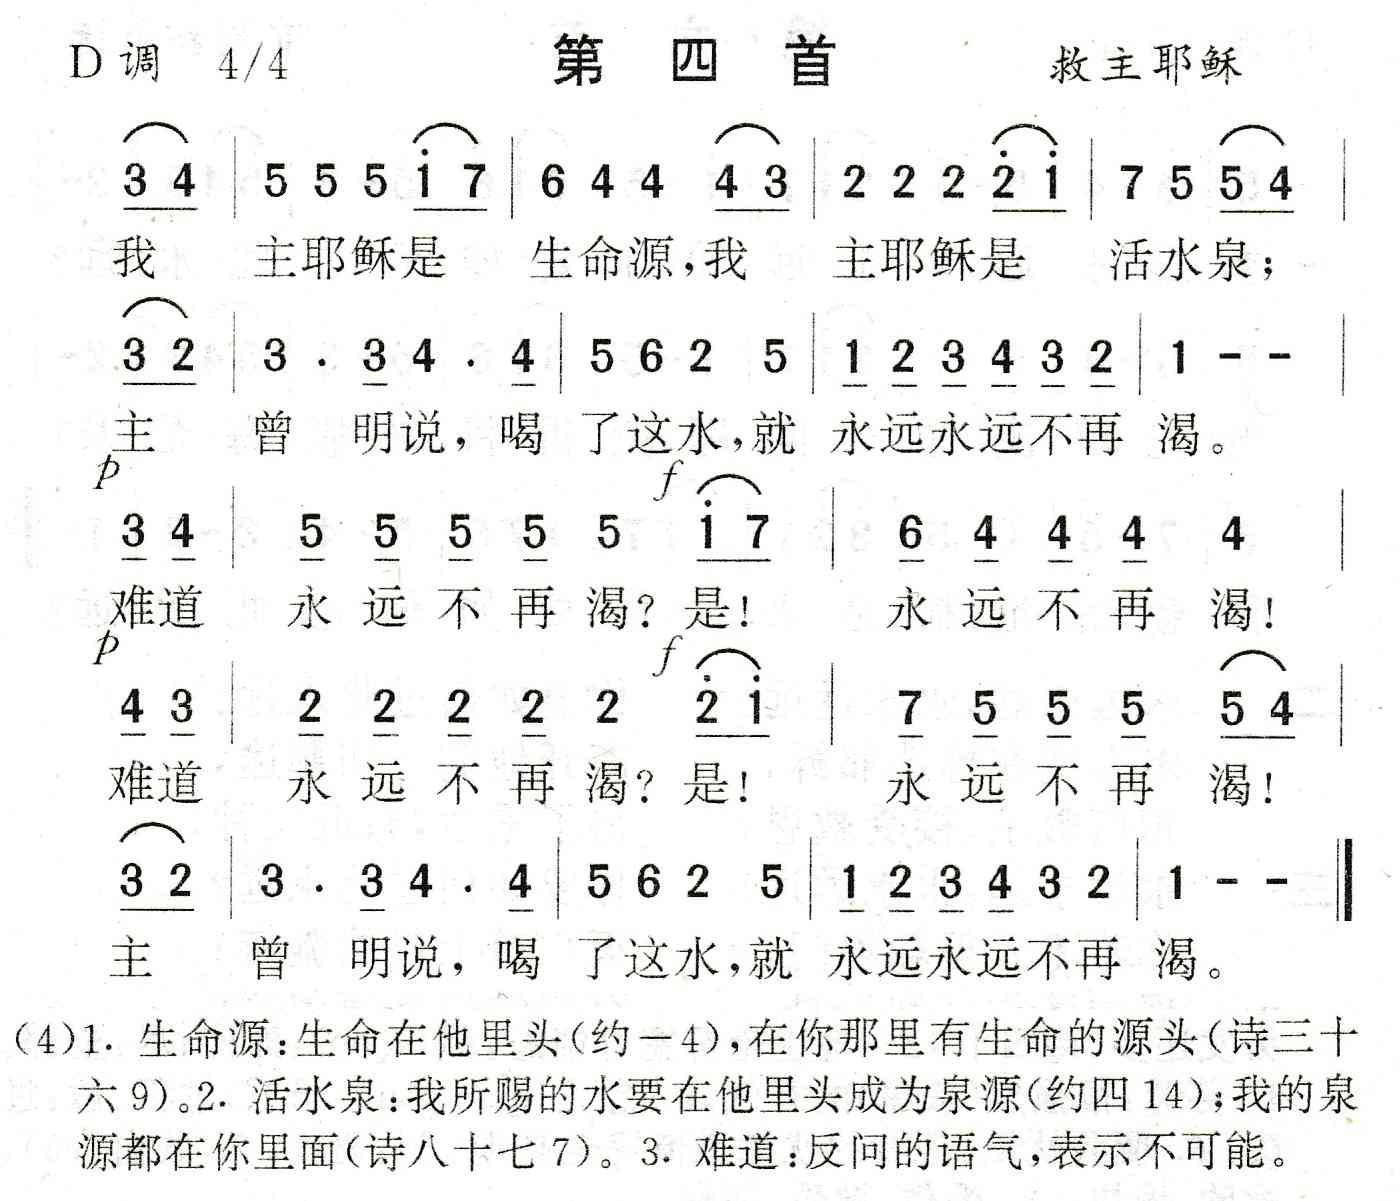 D调 4/4 第四首 救主耶稣
3 4 | 5 5 5 i 7 | 6 4 4 4 3 | 2 2 2 2̇ i | 7 5 5 4 |
我 主耶稣是 生命源,我 主耶稣是 活水泉;
3 2 | 3 . 3 4 . 4 | 5 6 2 5 | 1 2 3 4 3 2 | 1 - - |
主 曾 明说,喝 了这水,就 永远永远不再 渴。
p f
3 4 | 5 5 5 5 5 i 7 | 6 4 4 4 4 |
难道 永远不再渴?是! 永远不再渴!
p f
4 3 | 2 2 2 2 2 2̇ i | 7 5 5 5 5 4 |
难道 永远不再渴?是! 永远不再渴!
3 2 | 3 . 3 4 . 4 | 5 6 2 5 | 1 2 3 4 3 2 | 1 - - ‖
主 曾 明说,喝 了这水,就 永远永远不再 渴。
(4)1. 生命源:生命在他里头(约一4),在你那里有生命的源头(诗三十
六9)。2. 活水泉:我所赐的水要在他里头成为泉源(约四14);我的泉
源都在你里面(诗八十七7)。3. 难道:反问的语气,表示不可能。